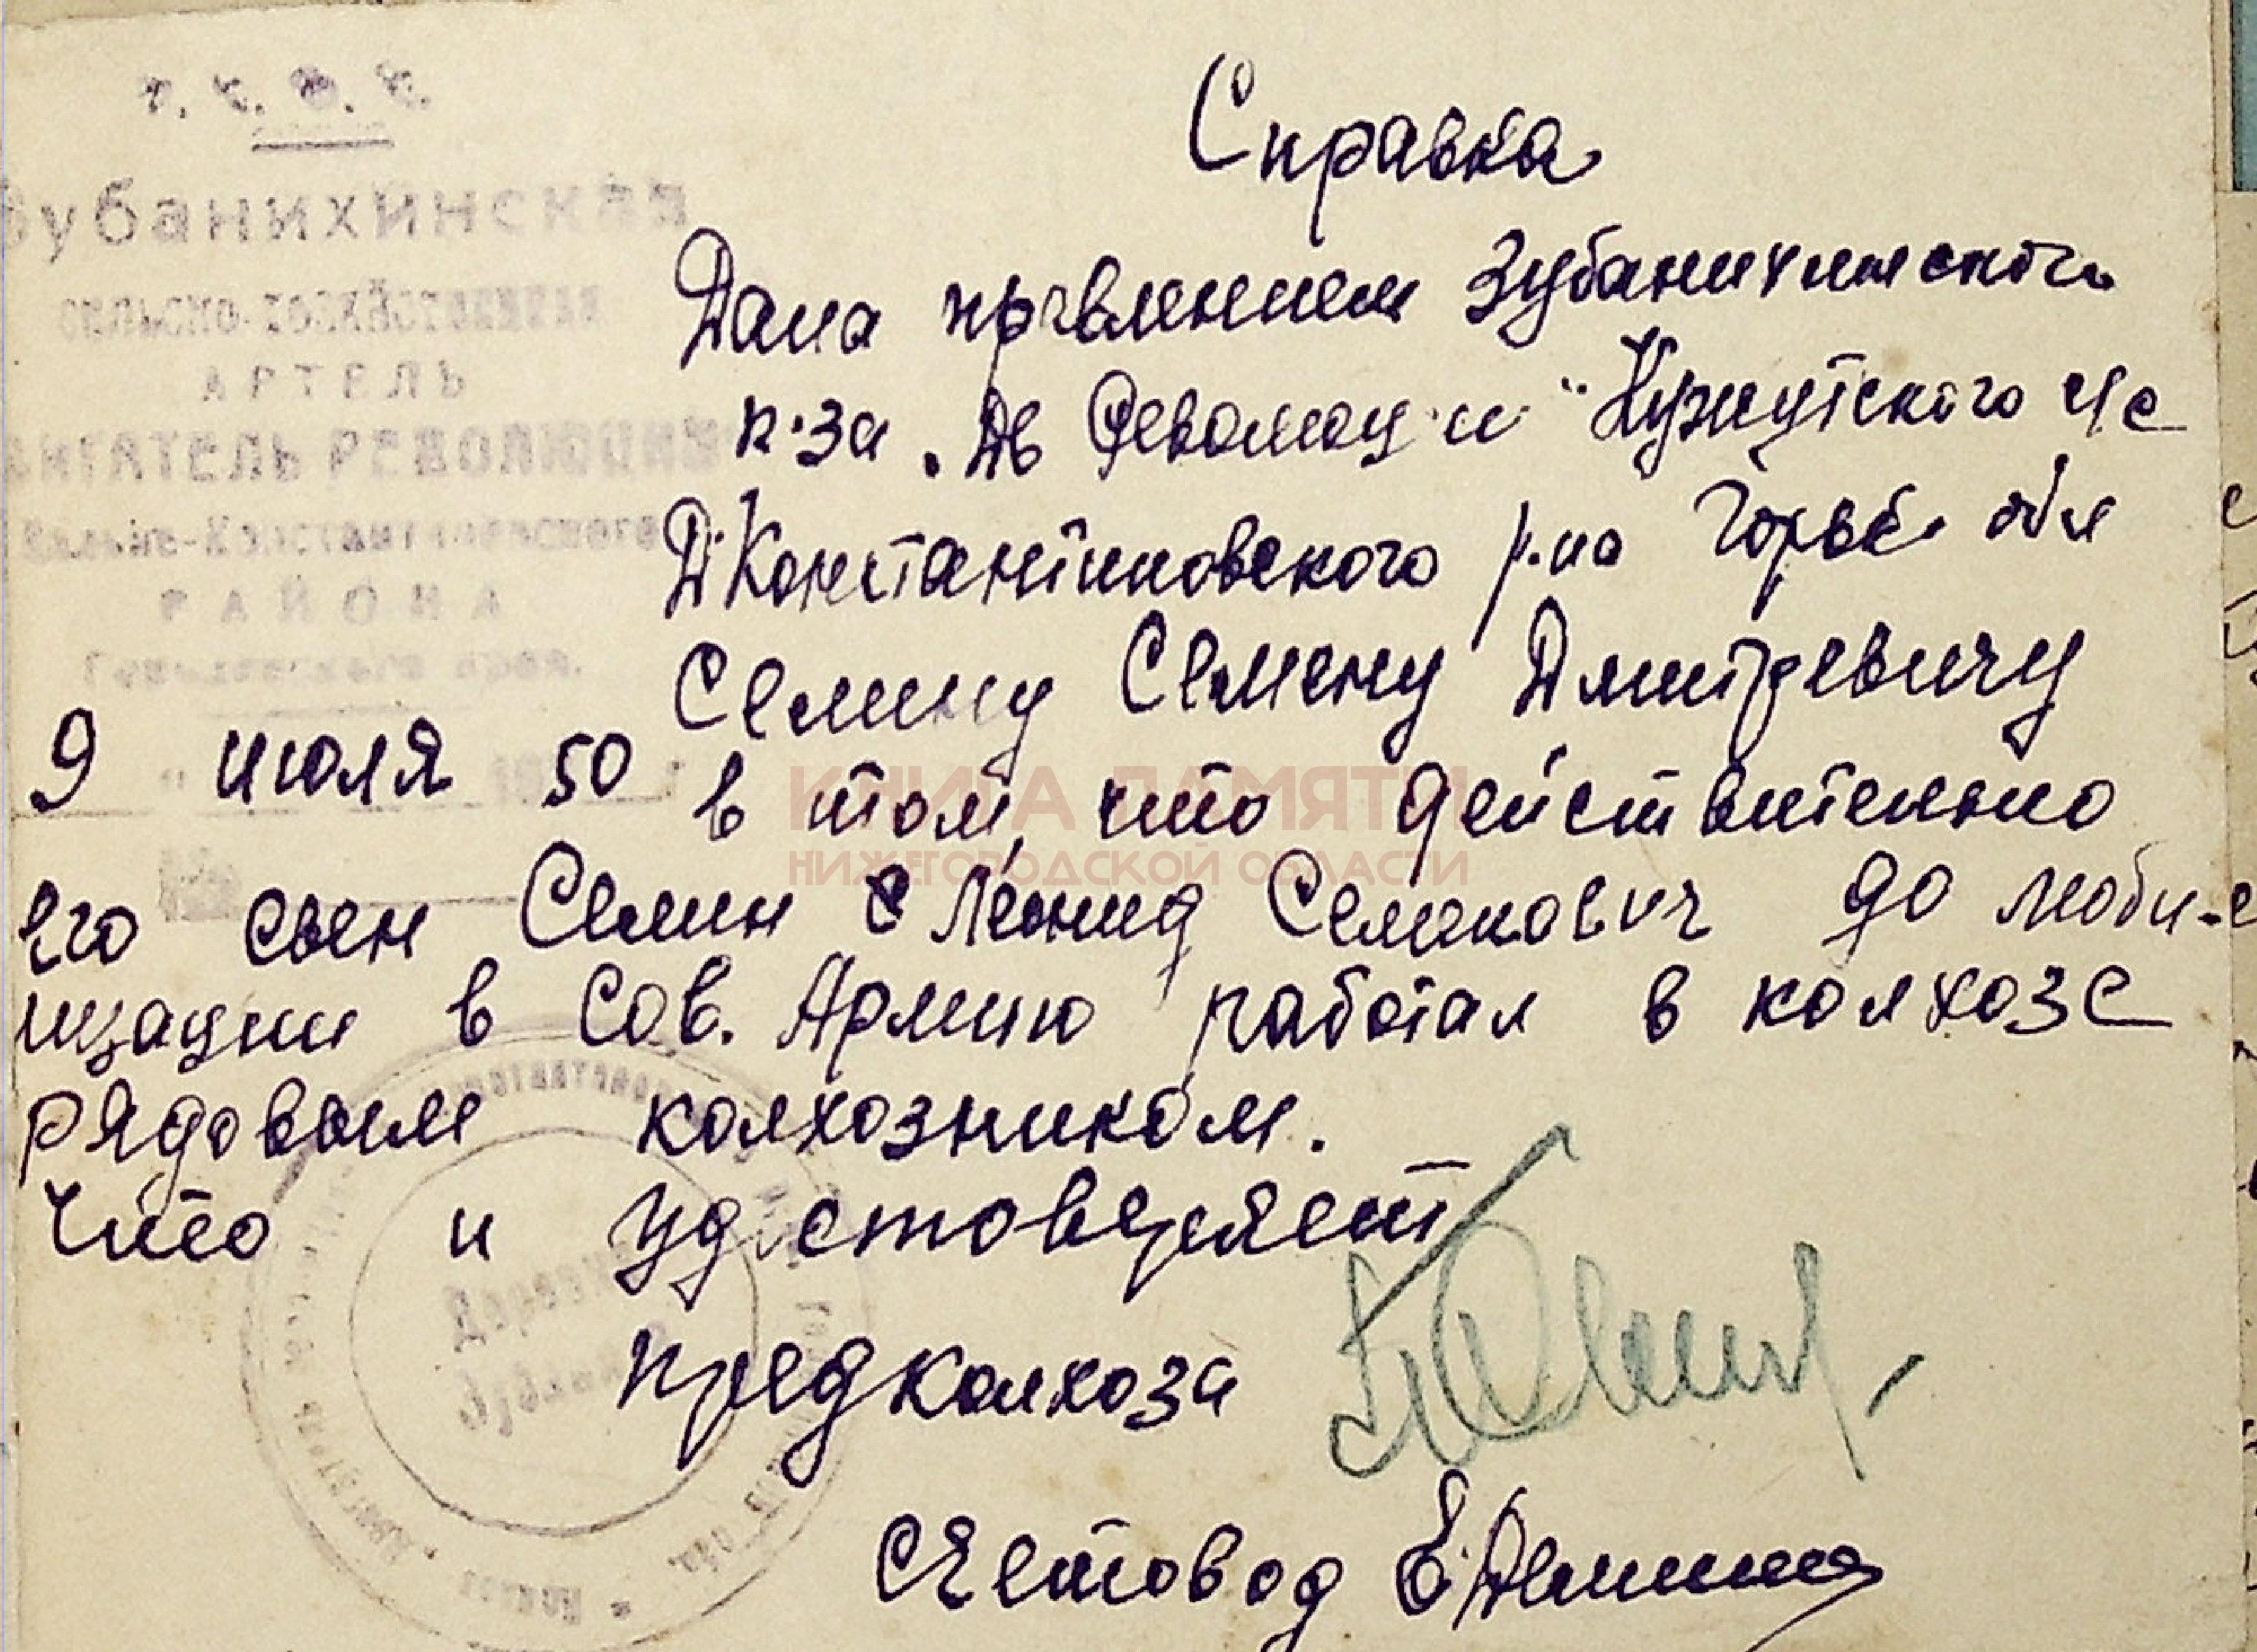 Р. С. Ф. С.
Зубанихинская
СЕЛЬСКО-ХОЗЯЙСТВЕННАЯ
АРТЕЛЬ
ДВИГАТЕЛЬ РЕВОЛЮЦИИ
Дальне-Константиновского
РАЙОНА
Горьковского края.
Справка
Дана правлением Зубанихинского
к-за „Дв Революции" Нужутского с/с
ДКонстантиновского р-на Горьк. обл
Семину Семену Дмитревичу
9 июля 50
в том, что действительно
его сын Семин Леонид Семенович до моби-
лизации в Сов. Армию работал в колхозе
рядовым колхозником.
Что и удостоверяет
Предколхоза
Счетовод Е. Демина
КНИГА ПАМЯТИ
НИЖЕГОРОДСКОЙ ОБЛАСТИ